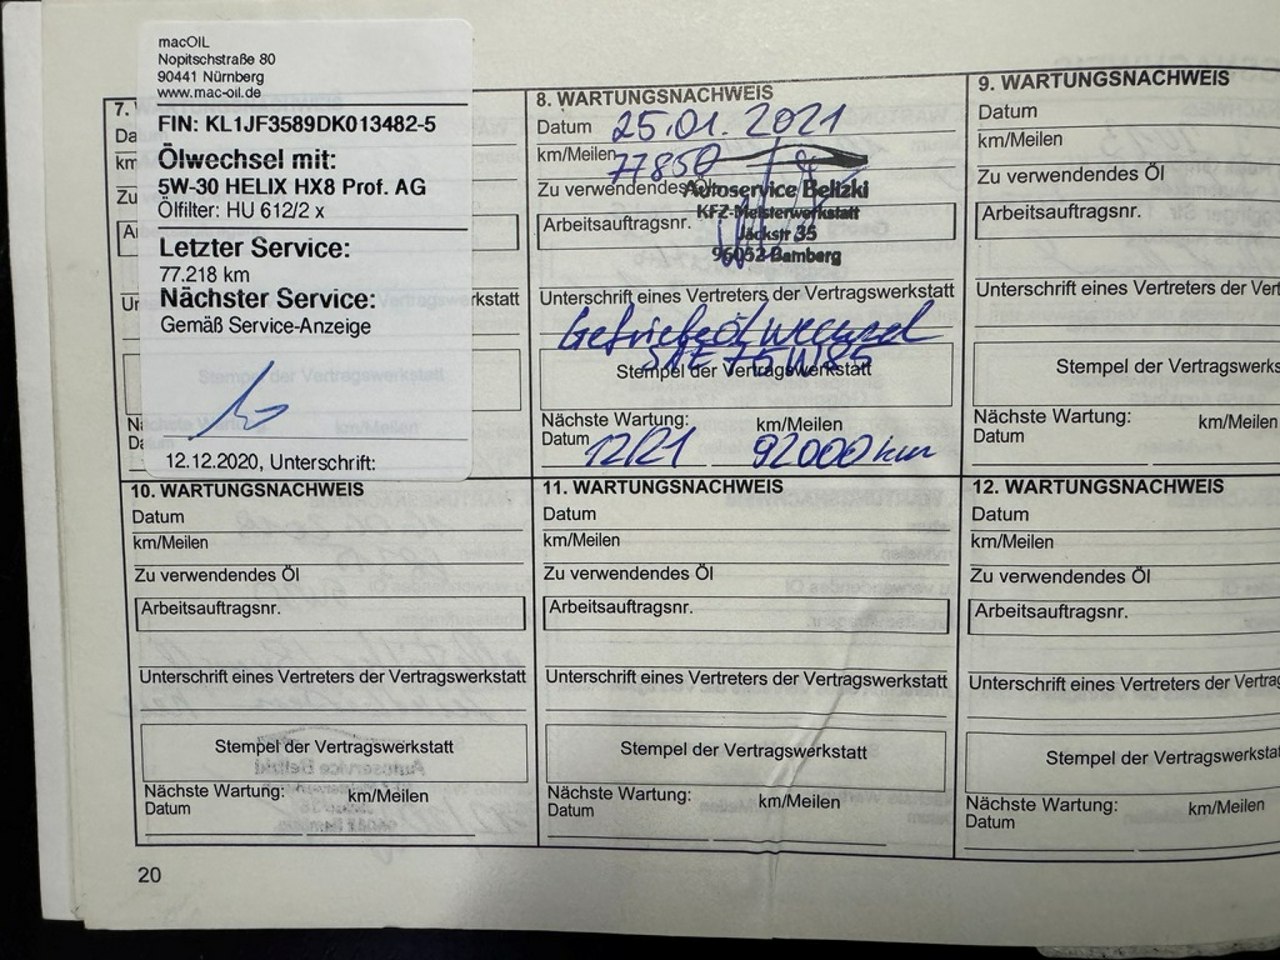 macOIL
Nopitschstraße 80
90441 Nürnberg
www.mac-oil.de
FIN: KL1JF3589DK013482-5
Ölwechsel mit:
5W-30 HELIX HX8 Prof. AG
Ölfilter: HU 612/2 x
Letzter Service:
77.218 km
Nächster Service:
Gemäß Service-Anzeige
12.12.2020, Unterschrift:
7.
Da
km
Zu
Ar
Un
rkstatt
Stempel der Vertragswerkstatt
Nä
km/Meilen
Da
8. WARTUNGSNACHWEIS
Datum 25.01.2021
km/Meilen 77850
Zu verwendendes Öl
Autoservice Belizki
KFZ-Meisterwerkstatt
Arbeitsauftragsnr.
Jäckstr 35
96052 Bamberg
Unterschrift eines Vertreters der Vertragswerkstatt
Getriebeölwechsel
SAE 75W85
Stempel der Vertragswerkstatt
Nächste Wartung: km/Meilen
Datum 12/21 92000 km
9. WARTUNGSNACHWEIS
Datum
km/Meilen
Zu verwendendes Öl
Arbeitsauftragsnr.
Unterschrift eines Vertreters der Vert
Stempel der Vertragswerks
Nächste Wartung: km/Meilen
Datum
10. WARTUNGSNACHWEIS
Datum
km/Meilen
Zu verwendendes Öl
Arbeitsauftragsnr.
Unterschrift eines Vertreters der Vertragswerkstatt
Stempel der Vertragswerkstatt
Nächste Wartung: km/Meilen
Datum
11. WARTUNGSNACHWEIS
Datum
km/Meilen
Zu verwendendes Öl
Arbeitsauftragsnr.
Unterschrift eines Vertreters der Vertragswerkstatt
Stempel der Vertragswerkstatt
Nächste Wartung: km/Meilen
Datum
12. WARTUNGSNACHWEIS
Datum
km/Meilen
Zu verwendendes Öl
Arbeitsauftragsnr.
Unterschrift eines Vertreters der Vertrag
Stempel der Vertragswerkstat
Nächste Wartung: km/Meilen
Datum
20